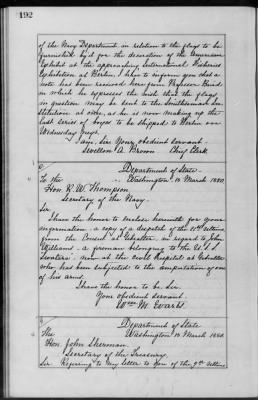 192
of the Navy Department in relation to the flags to be
furnished by it for the decoration of the American
Exhibit at the approaching International Fisheries
Exhibition at Berlin, I have to inform you that a
note has been received here from Professor Baird
in which he expresses the wish that the flags
in question may be sent to the Smithsonian Ins-
titution at once, as he is now making up the
last series of boxes to be shipped to Berlin on
Wednesday next.
I am, Sir, Your obedient servant.
Sevellon A. Brown Chief Clerk.
Department of State.
To the Washington, 12 March 1880.
Hon. R. W. Thompson
Secretary of the Navy.
Sir
I have the honor to enclose herewith for your
information a copy of a despatch of the
from the Consul at Gibraltar, in regard to John
Williams, a fireman belonging to the U.S.S.
now at the civil hospital at Gibraltar
who has been subjected to the amputation of one
of his arms.
I have the honor to be, Sir
Your obedient servant.
Wm. M. Evarts.
Department of State
The Washington, 12 March 1880.
Hon. John Sherman.
Secretary of the Treasury.
Sir Referring to my letter to you of the 9th